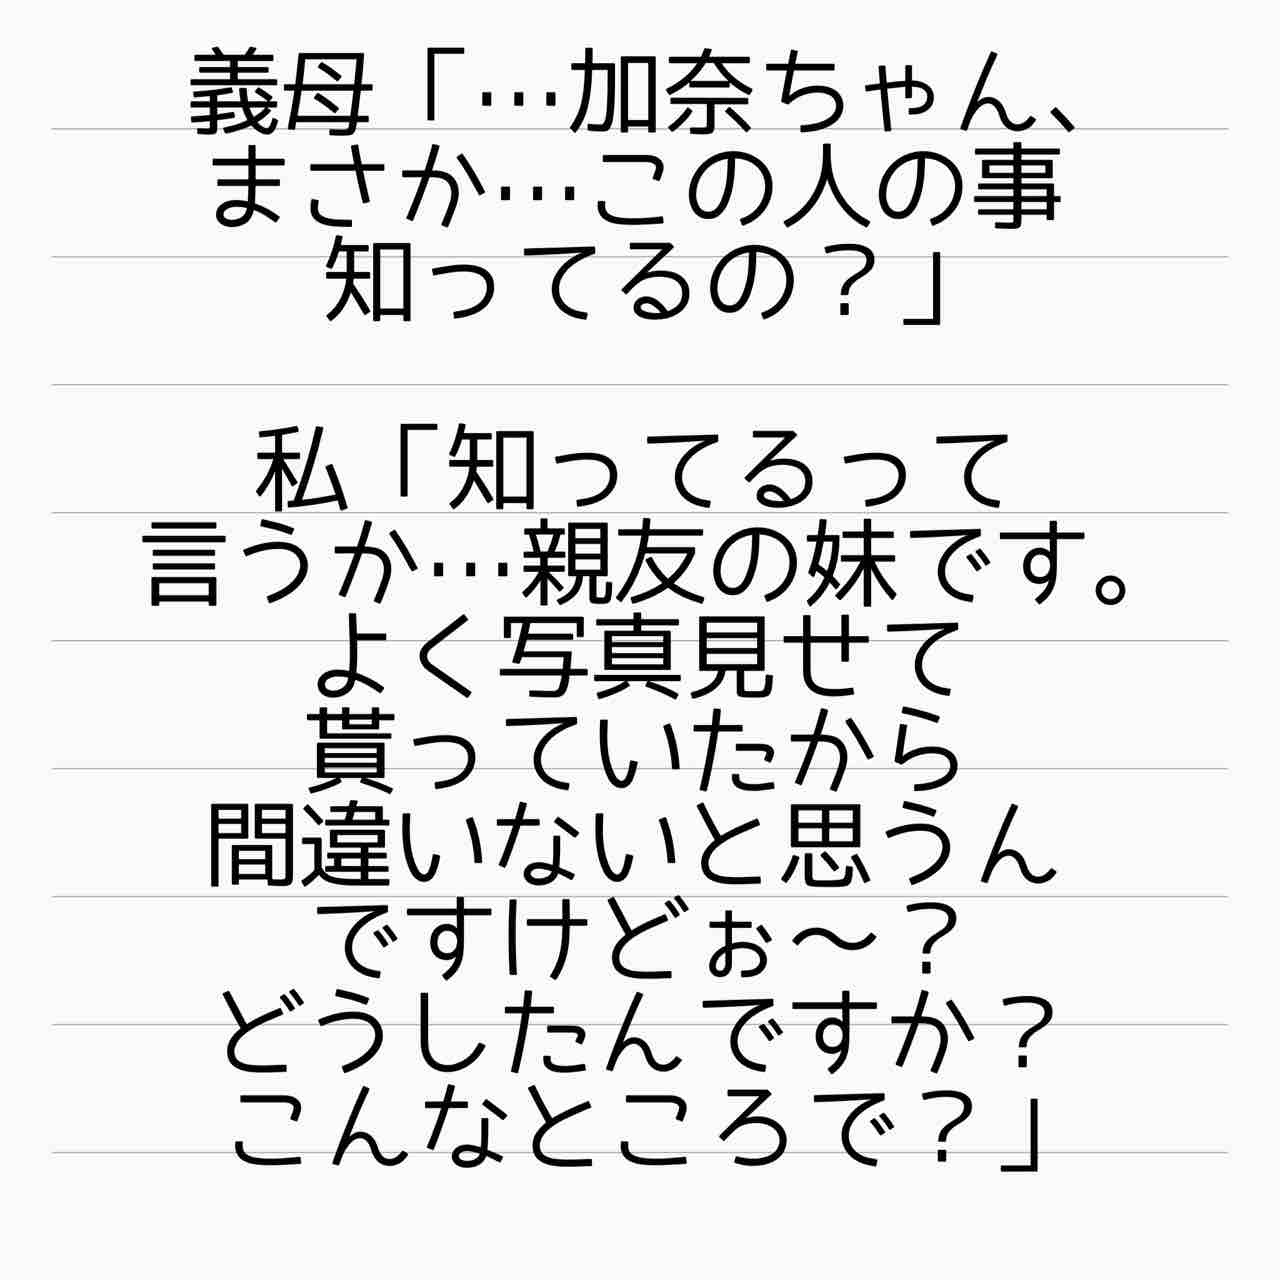 義母「…加奈ちゃん、
まさか…この人の事
知ってるの？」
私「知ってるって
言うか…親友の妹です。
よく写真見せて
貰っていたから
間違いないと思うん
ですけどぉ〜？
どうしたんですか？
こんなところで？」